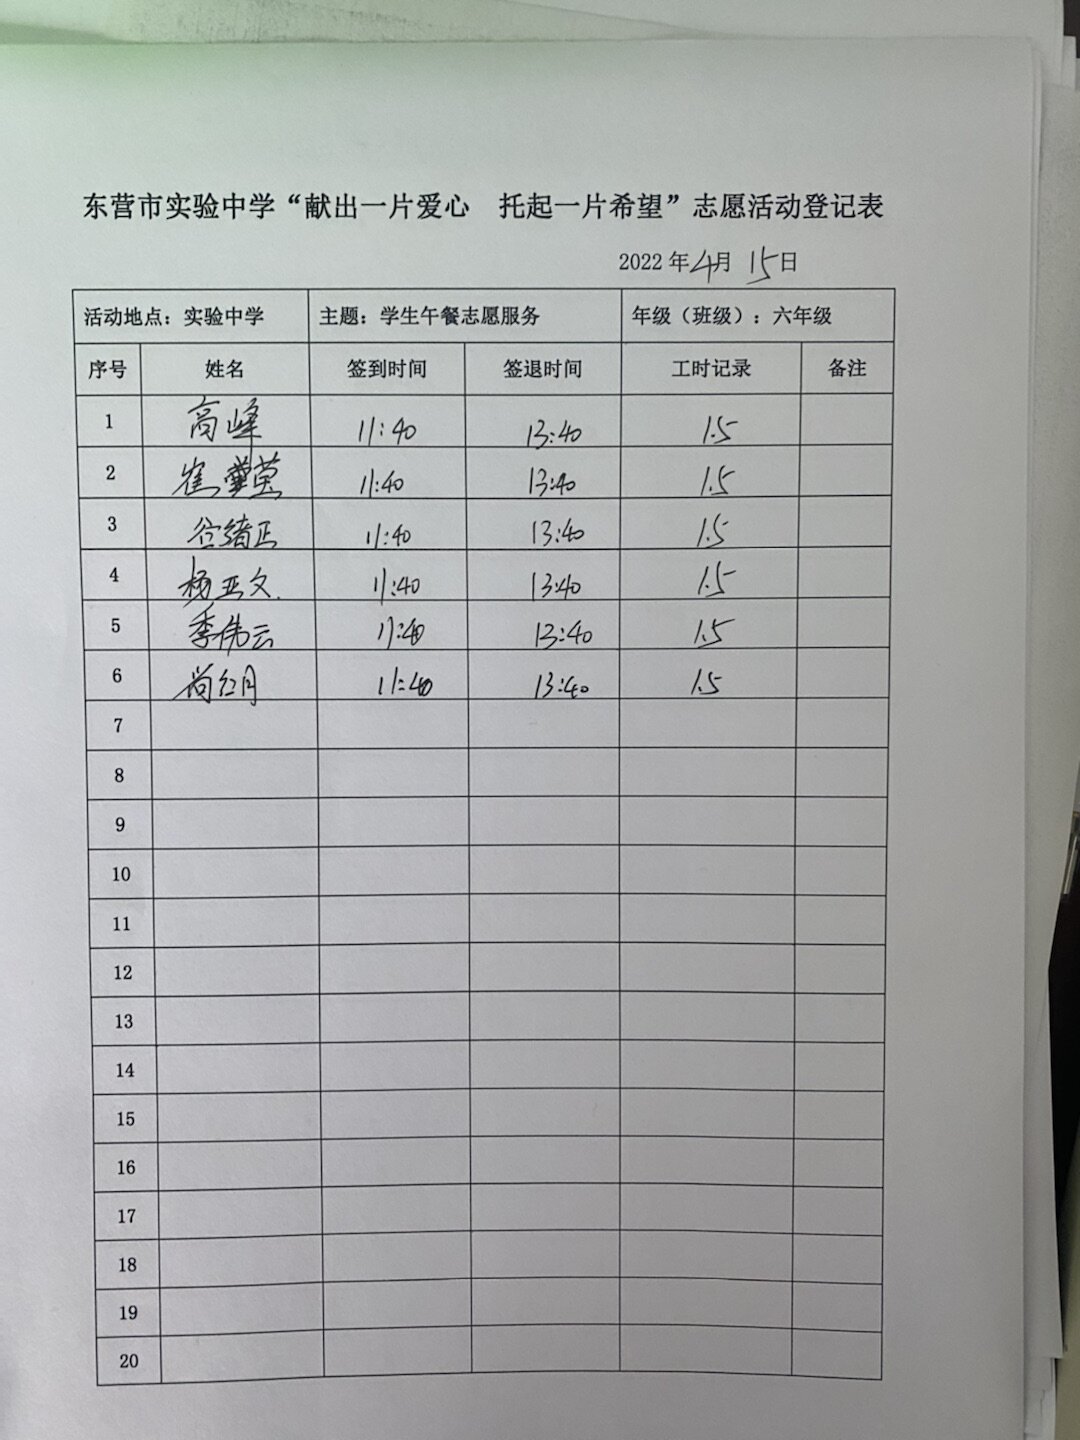 东营市实验中学“献出一片爱心 托起一片希望”志愿活动登记表
2022 年 4 月 15 日
活动地点：实验中学 主题：学生午餐志愿服务 年级（班级）：六年级
序号 姓名 签到时间 签退时间 工时记录 备注
1 高峰 11:40 13:40 1.5
2 崔莹 11:40 13:40 1.5
3 谷绪正 11:40 13:40 1.5
4 杨亚文 11:40 13:40 1.5
5 季伟云 11:40 13:40 1.5
6 尚红月 11:40 13:40 1.5
7
8
9
10
11
12
13
14
15
16
17
18
19
20